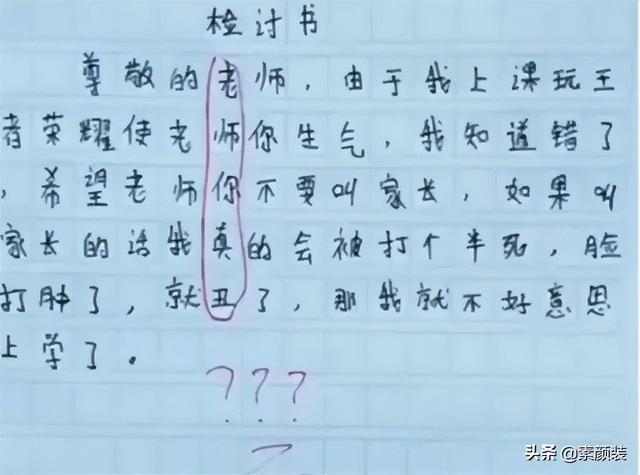 检讨书
尊敬的老师，由于我上课玩王
者荣耀使老师你生气，我知道错了
，希望老师你不要叫家长，如果叫
家长的话我真的会被打个半死，脸
打肿了，就丑了，那我就不好意思
上学了。
???
头条 @素颜装